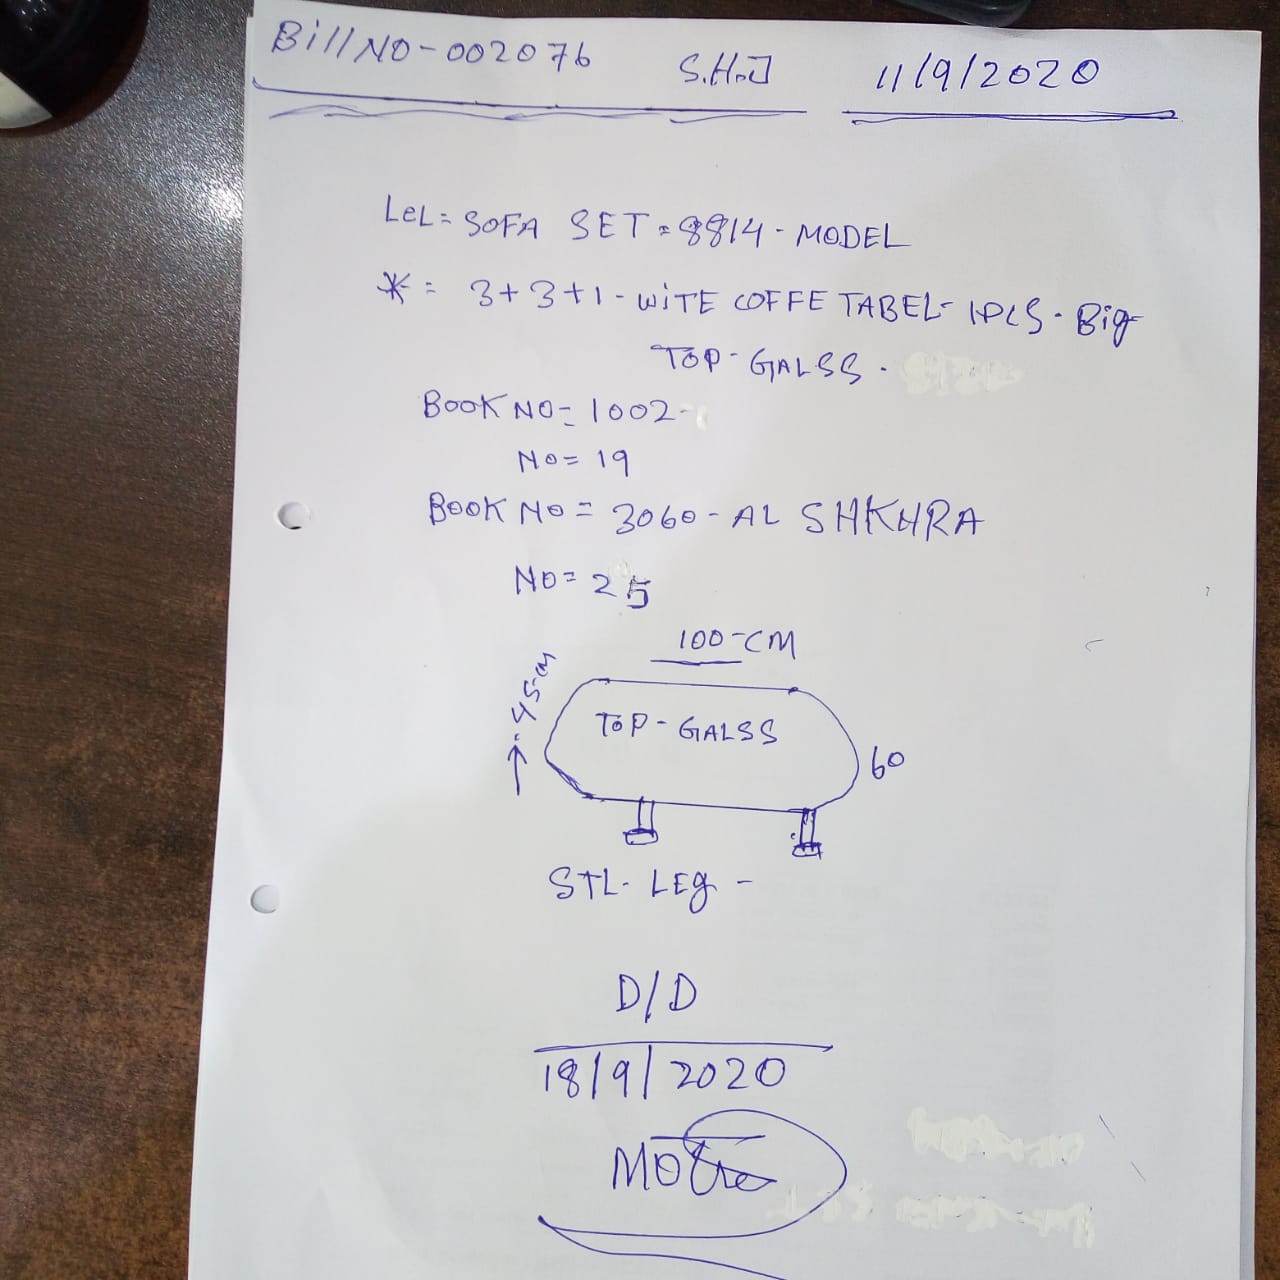 Bill NO-002076 S.H.J 11/9/2020
LeL= SOFA SET = 8814 - MODEL
* = 3+3+1 - WiTE COFFE TABEL- 1PCS - Big
TOP - GALSS .
BOOK NO= 1002-
NO= 19
BOOK NO = 3060 - AL SHKHRA
NO= 25
100-CM
45-cm
TOP - GALSS
60
STL- LEg -
D/D
18/9/2020